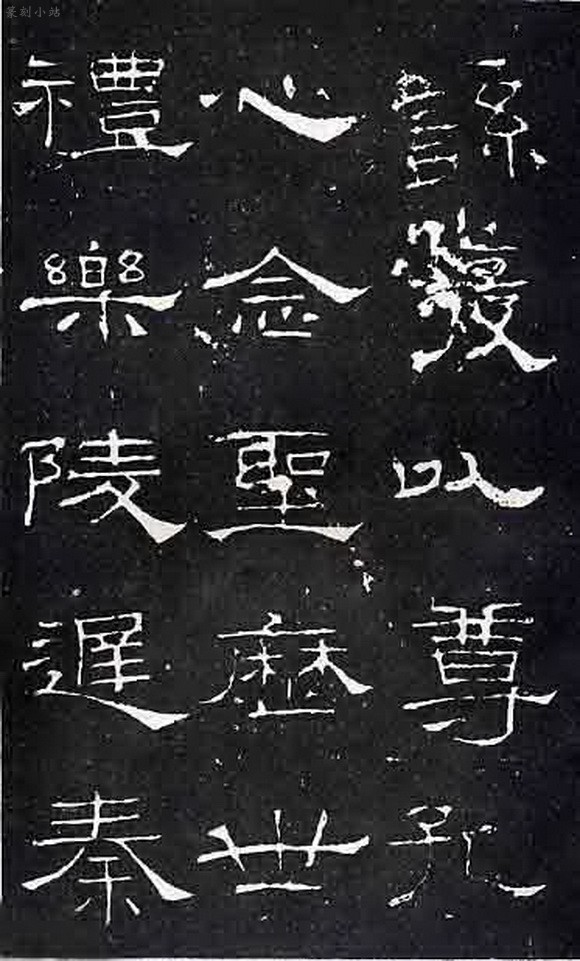 篆刻小站
繇發以尊孔
心念聖歷世
禮樂陵遲秦